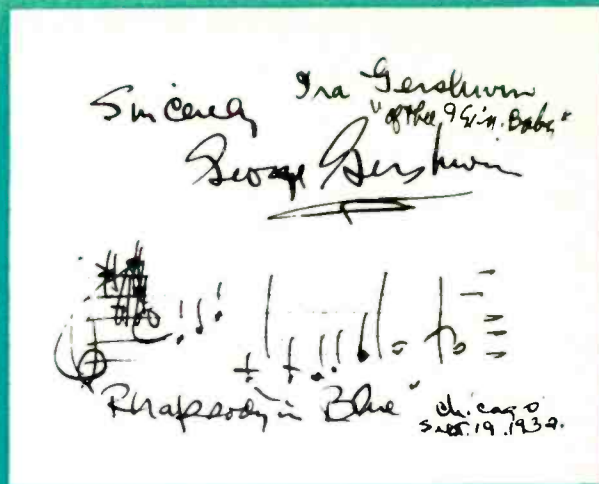 Sincerely
Ira Gershwin
"Of Thee I Sin. Baby"
George Gershwin
"Rhapsody in Blue"
Chicago
Sept. 19. 1932.